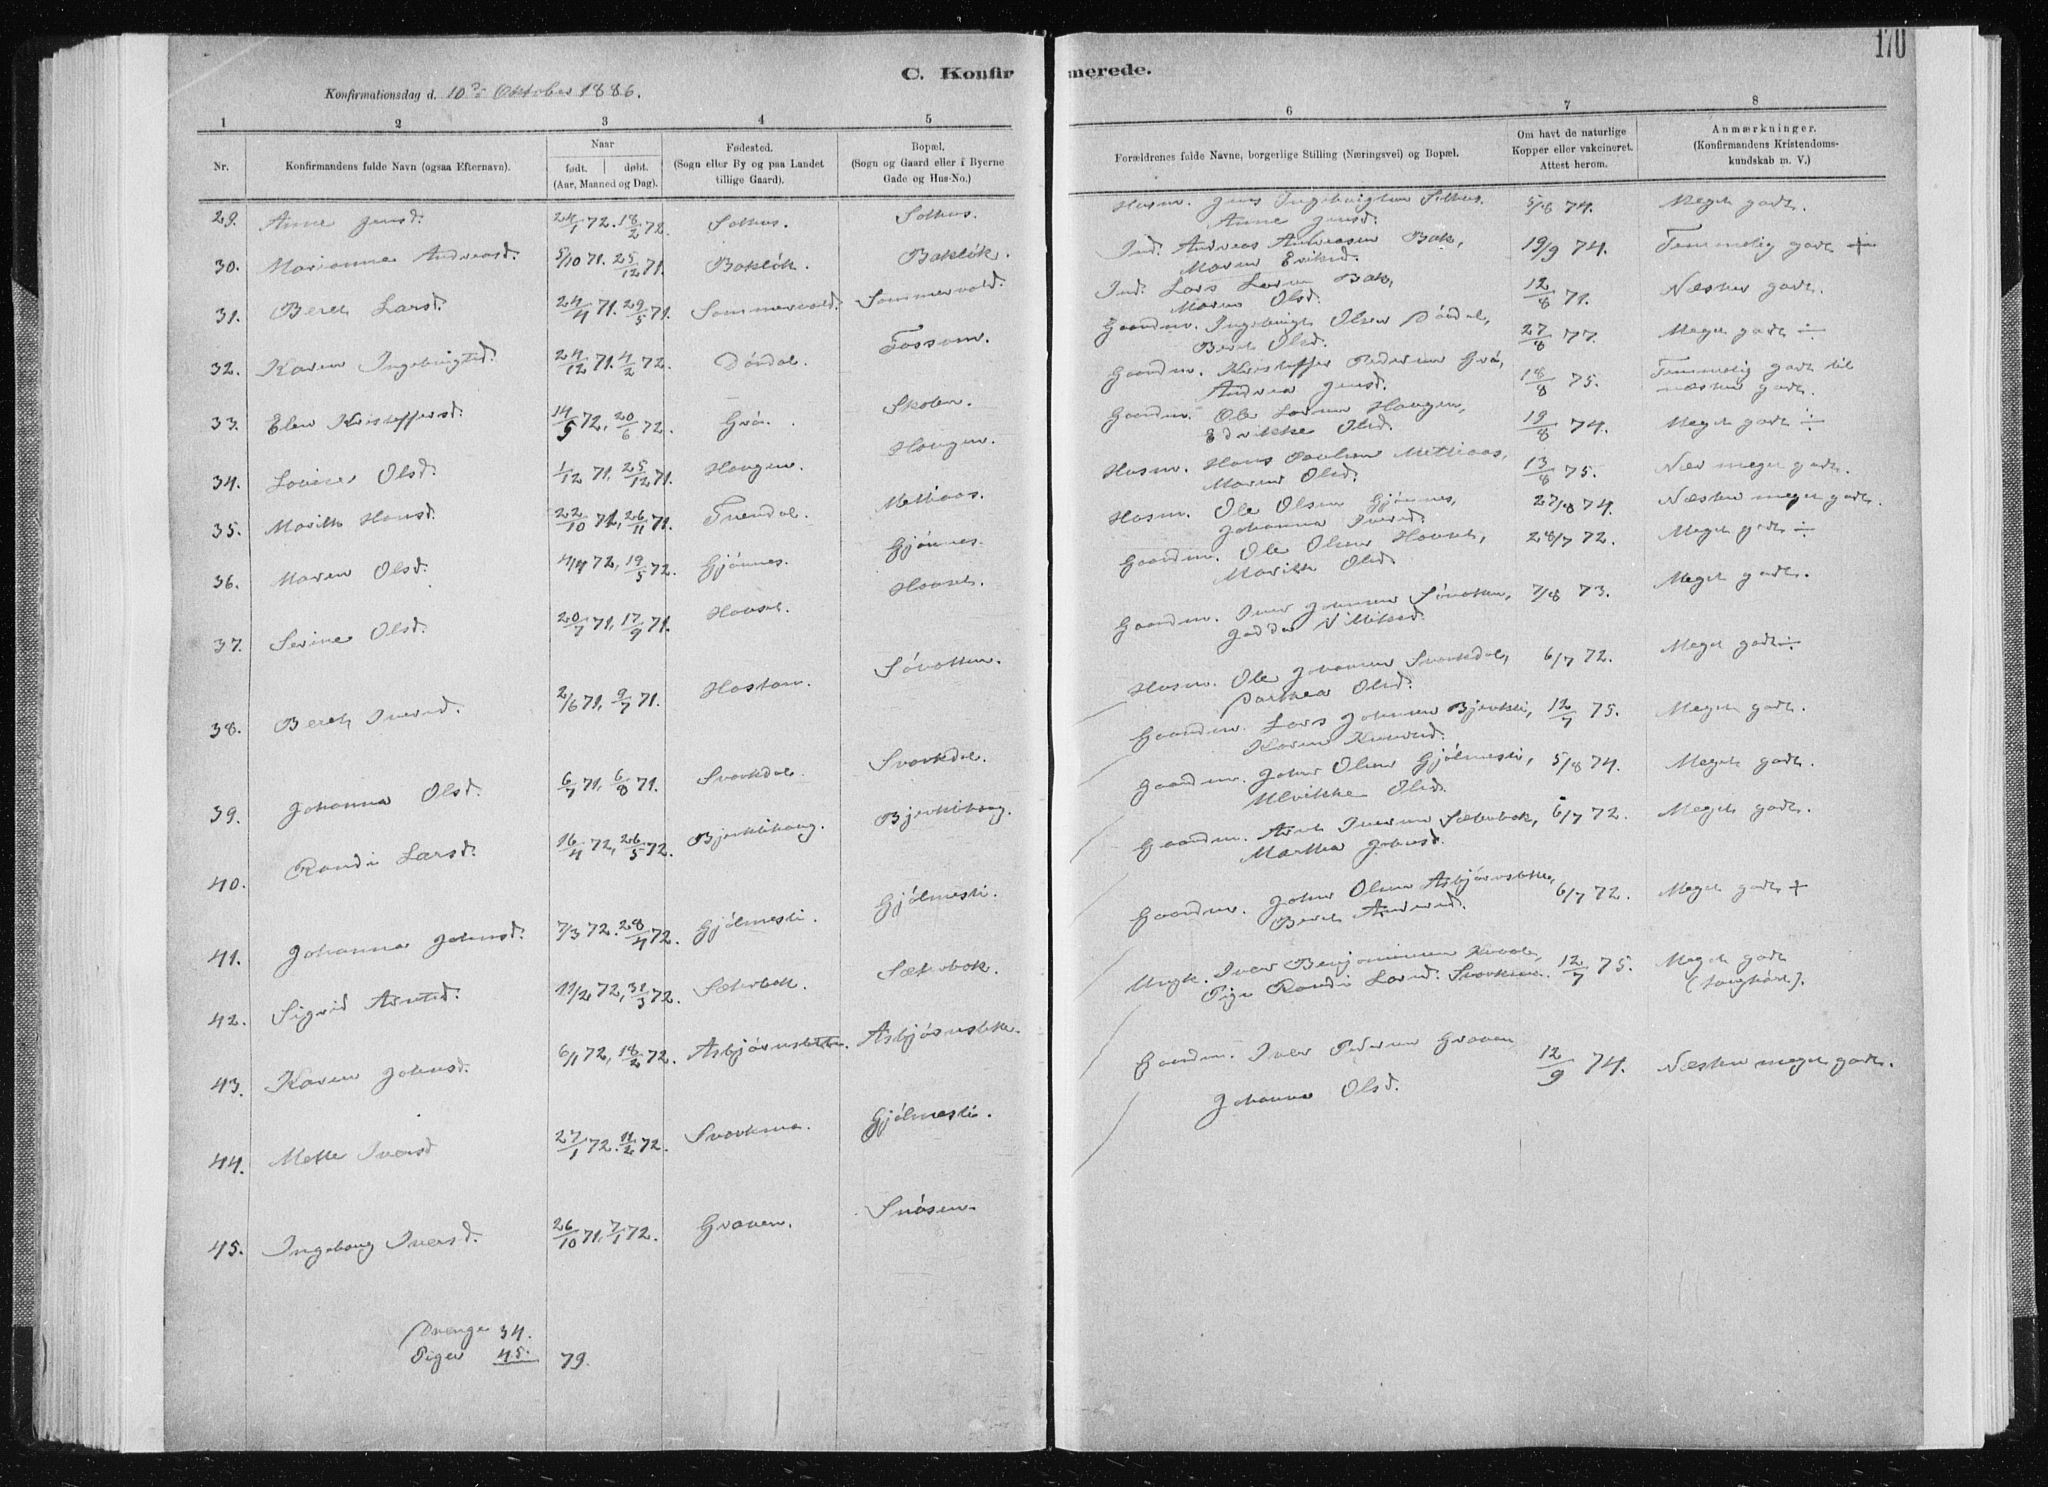 170
C. Konfirmerede.
Konfirmationsdag d. 10de Oktober 1886.
1 2 3 4 5 6 7 8
Nr. Konfirmandens fulde Navn (ogsaa Efternavn). Naar født. døbt. (Aar, Maaned og Dag). Fødested. (Sogn eller By og paa Landet tillige Gaard). Bopæl. (Sogn og Gaard eller i Byerne Gade og Hus-No.) Forældrenes fulde Navne, borgerlige Stilling (Næringsvei) og Bopæl. Om havt de naturlige Kopper eller vakcineret. Attest herom. Anmærkninger. (Konfirmandens Kristendomskundskab m. V.)
29. Anne Jensd. 24/1 72. 18/2 72. Solhus. Solhus. Husm. Jens Ingebrigtsen Solhus. Anne Jensd. 5/8 74. Meget godt.
30. Marianna Andreasd. 5/10 71. 25/12 71. Bakløk. Bakløk. Ind. Andreas Andreasen Bak, Maren Eriksd. 19/9 74. Temmelig godt +
31. Bereth Larsd. 24/4 71. 29/5 71. Sommervold. Sommervold. Ind. Lars Larsen Bak, Maren Olsd. 12/8 71. Næsten godt.
32. Karen Ingebrigtsd. 24/12 71. 4/2 72. Dördal. Fossom. Gaardm. Ingebrigt Olsen Dördal, Beret Olsd. 27/8 77. Meget godt ÷
33. Elen Kristoffersd. 14/5 72, 20/6 72. Grö. Skolen. Gaardm. Kristoffer Pedersen Grö, Andrea Jensd. 18/8 75. Temmelig godt til næsten godt.
34. Lovise Olsd. 1/12 71, 25/12 71. Haugen. Haugen. Gaardm. Ole Larsen Haugen, Edvikke Olsd. 19/8 74. Meget godt ÷
35. Marith Hansd. 22/10 71, 26/11 71. Tuendal. Metliaas. Husm. Hans Paulsen Metliaas, Maren Olsd. 13/8 75. Nær meget godt.
36. Maren Olsd. 4/4 72, 19/5 72. Gjønnes. Gjønnes. Husm. Ole Olsen Gjønnes, Johanna Iversd. 27/8 74. Næsten meget godt.
37. Serine Olsd. 20/7 71, 17/9 71. Hovset. Hovset. Gaardm. Ole Olsen Hovset, Marith Olsd. 28/7 72. Meget godt ÷
38. Bereth Iversd. 2/6 71, 9/7 71. Hoston. Sövatten. Gaardm. Iver Johnsen Sövatten, 7/8 73. Meget godt.
39. Johanna Olsd. 6/7 71, 6/8 71. Svorkdal. Svorkdal. Husm. Ole Johansen Svorkdal, Dorthea Olsd. 6/7 72. Meget godt ÷
40. Randi Larsd. 16/4 72, 26/5 72. Bjerklihaug. Bjerklihaug. Gaardm. Lars Johnsen Bjerkli, Karen Knutsd. 12/7 75. Meget godt.
41. Johanna Johnsd. 7/3 72. 28/4 72. Gjølmesli. Gjølmesli. Gaardm. John Olsen Gjølmesli, Ulrikke Olsd. 5/8 74. Meget godt.
42. Sigrid Arntsd. 11/2 72, 31/3 72. Sæterbak. Sæterbak. Gaardm. Arnt Iversen Sæterbak, Martha Johnsd. 6/7 72. Meget godt.
43. Karen Johnsd. 6/1 72, 18/2 72. Asbjørnslette. Asbjørnslette. Gaardm. John Olsen Asbjørnslette, Bereth Andersd. 6/7 72. Meget godt +
44. Mette Iversd 27/1 72. 11/2 72. Svorkmo. Gjølmesli. Ungk. Iver Benjaminsen Kvaale, Pige Randi Larsd. Svorkmo. 12/7 75. Meget godt (tunghørt).
45. Ingeborg Iversd. 26/10 71, 7/1 72. Graven. Snösen. Gaardm. Iver Pedersen Graven Johanna Olsd. 12/9 74. Næsten meget godt.
Drenge 34.
Piger 45. 79.